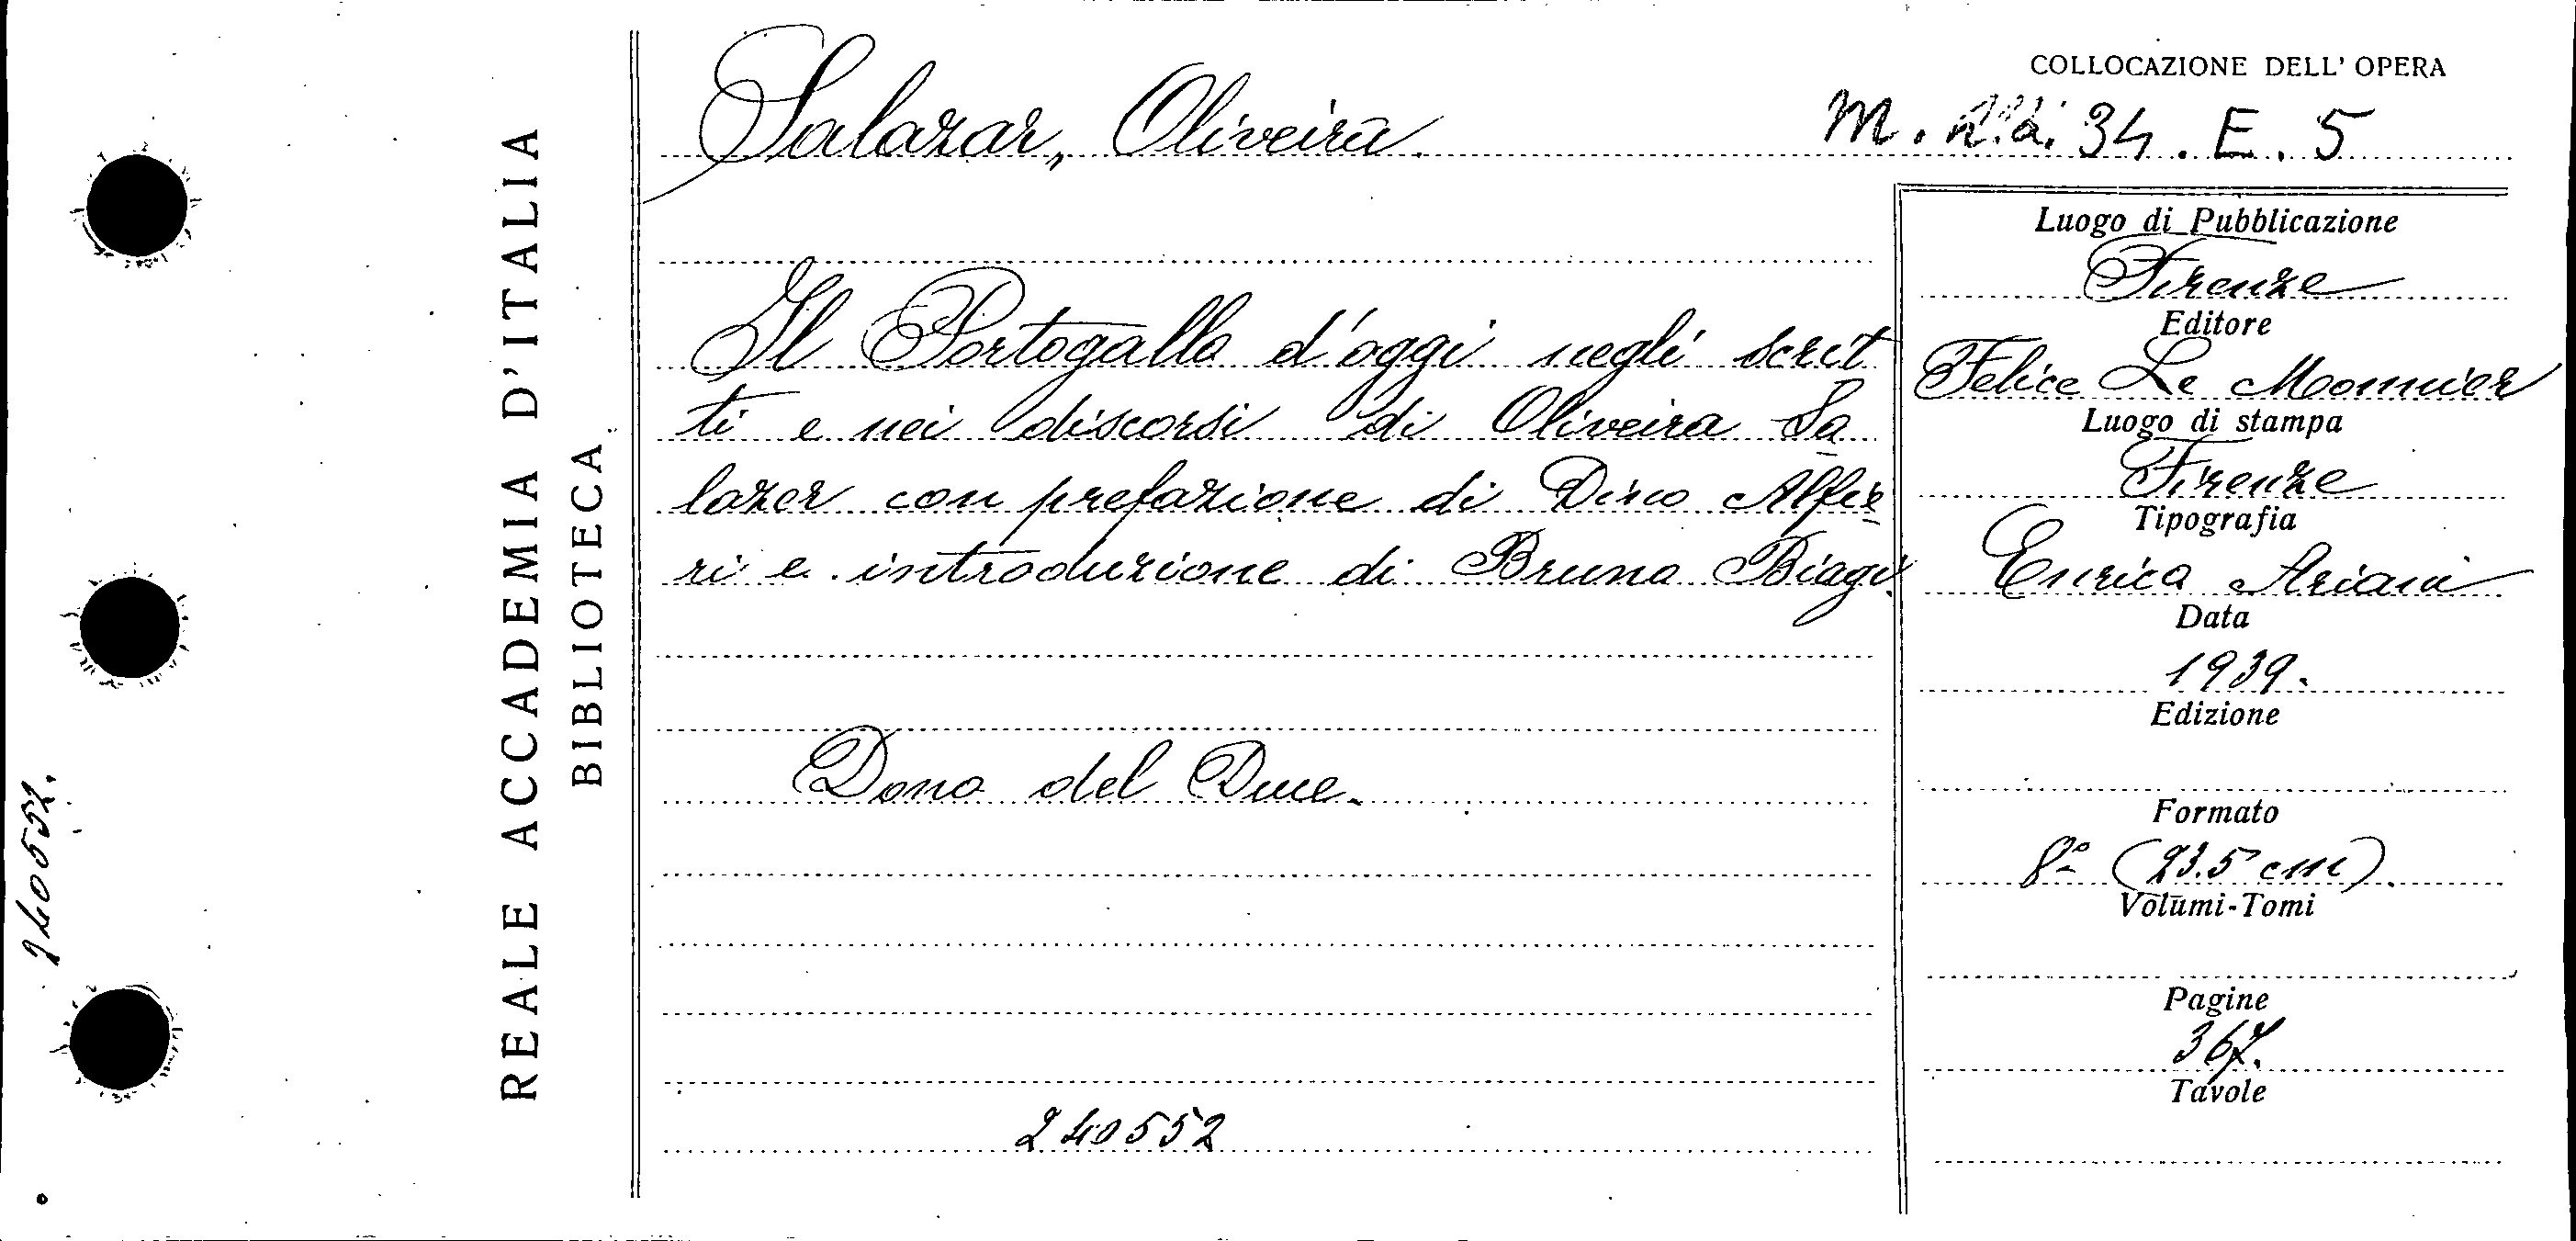 REALE ACCADEMIA D'ITALIA
BIBLIOTECA
240552.
COLLOCAZIONE DELL' OPERA
M. 34. E. 5
Salazar, Oliveira.
Il Portogallo d'oggi negli scrit
ti e nei discorsi di Oliveira Sa
lazar con prefazione di Dino Alfie
ri e introduzione di Bruno Biagi.
Dono del Duce.
240552
Luogo di Pubblicazione
Firenze
Editore
Felice Le Monnier
Luogo di stampa
Firenze
Tipografia
Enrico Ariani
Data
1939.
Edizione
Formato
8° (23.5 cm).
Volumi-Tomi
Pagine
367.
Tavole